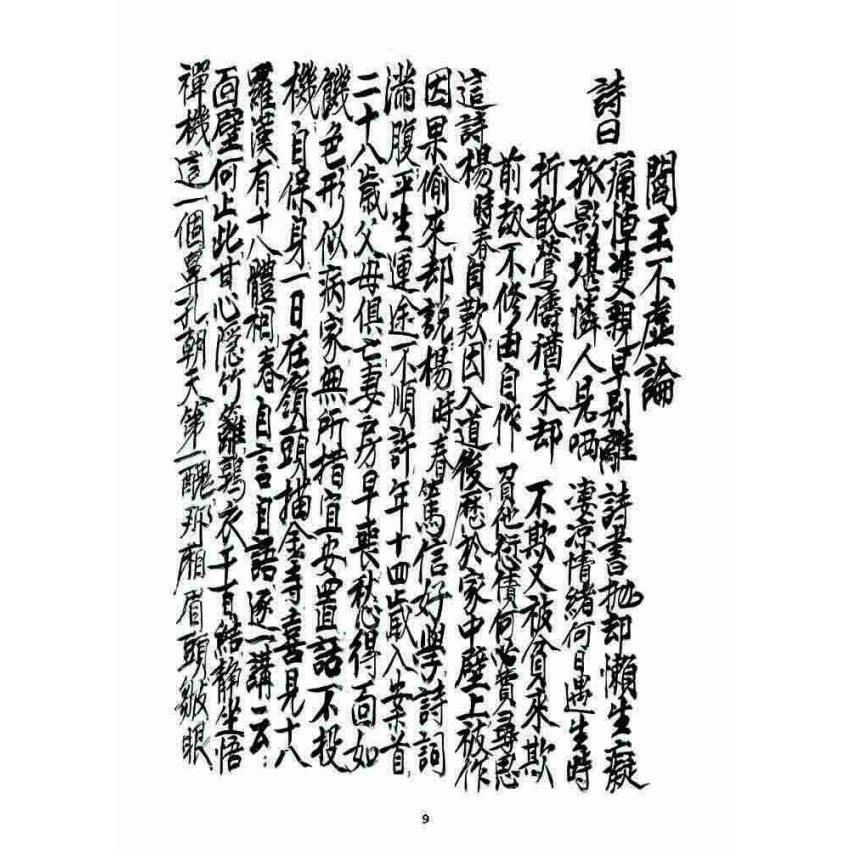 閻王不虛論
詩曰
痛悼双親早别離 詩書抛却懶生癡
孤影堪憐人見哂 凄凉情緒何日遇生時
折散鴛儔襠未却 不欺又被貧來欺
前劫不修由自作 負他愆債何必費尋思
這詩楊時春自歎因入道後歷於家中壁上被作
因果偷來却説楊時春篤信好學詩詞
滿腹平生運途不順許年十四歲入案首
二十八歲父母俱亡妻房早喪愁得面如
饑色形似病家無所措宜安置話不投
機自保身一日在嶺頭描金寺喜見十八
羅漢有十八體相春自言自語逐一講云
面壁何止此甘心隱竹蘿鶉衣千百結静坐悟
禪機這一個鼻孔朝天第一醜那廂眉頭皺眼
9